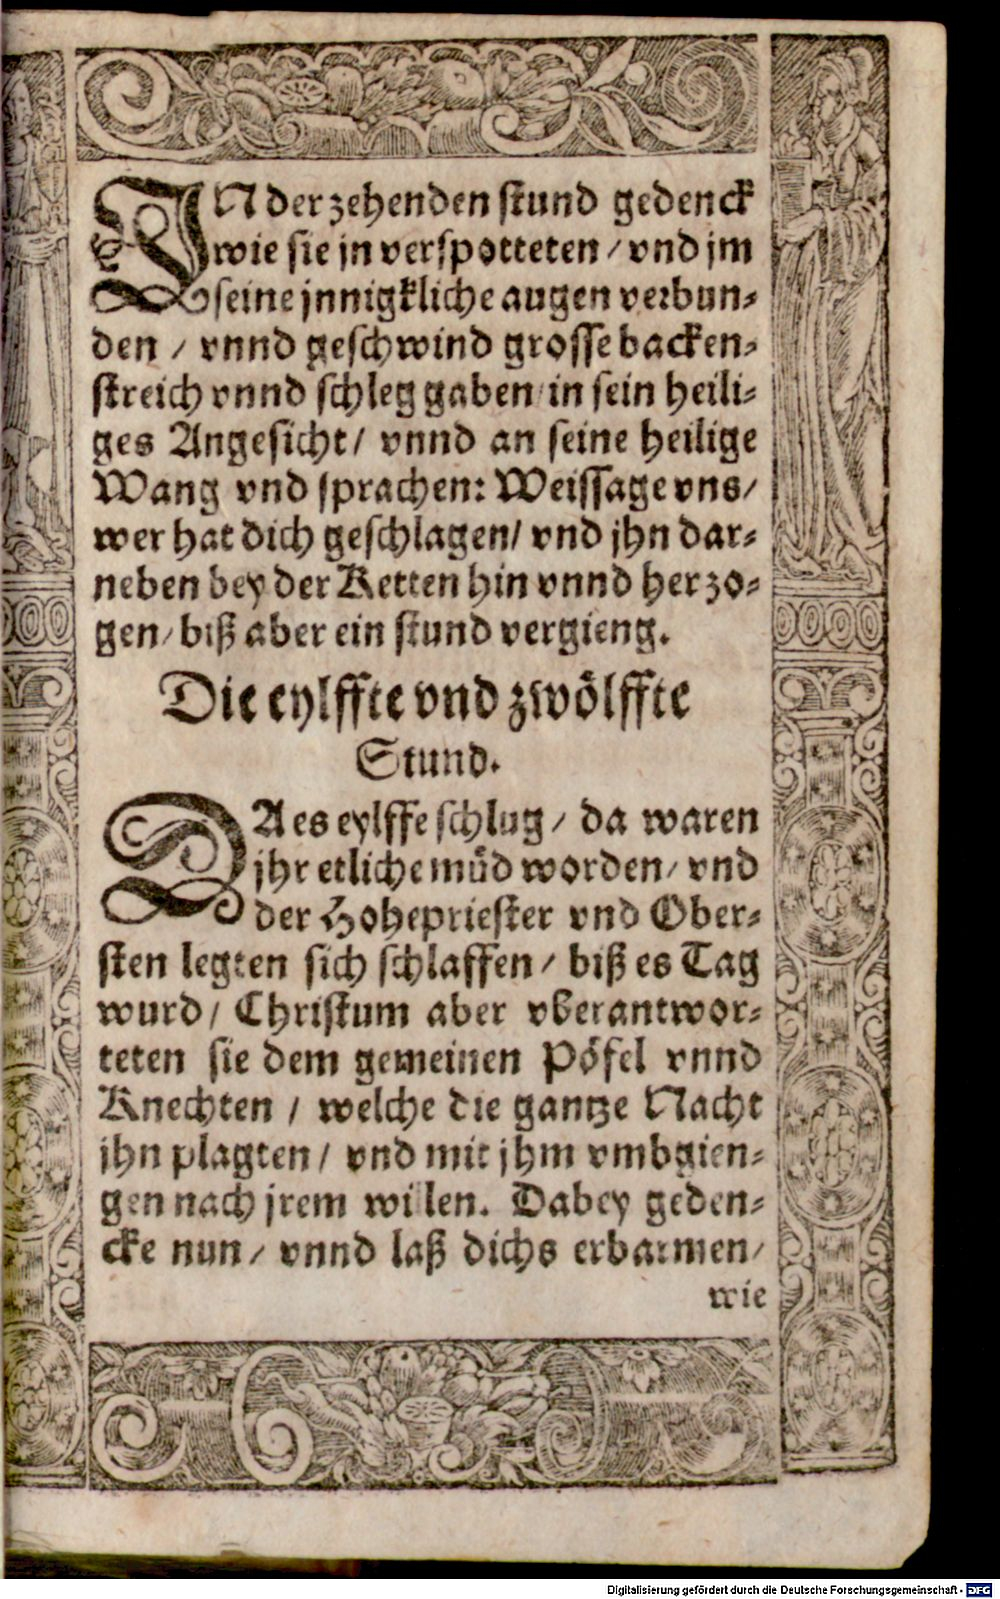 IN der zehenden stund gedenck
wie sie jn verspotteten / vnd jm
seine jnnigkliche augen verbun-
den / vnnd geschwind grosse backen-
streich vnnd schleg gaben in sein heili-
ges Angesicht / vnnd an seine heilige
Wang vnd sprachen: Weissage vns /
wer hat dich geschlagen / vnd jhn dar-
neben bey der Ketten hin vnnd her zo-
gen / biß aber ein stund vergieng.
Die eylffte vnd zwölffte
Stund.
DA es eylffe schlug / da waren
jhr etliche müd worden / vnd
der Hohepriester vnd Ober-
sten legten sich schlaffen / biß es Tag
wurd / Christum aber vberantwor-
teten sie dem gemeinen Pöfel vnnd
Knechten / welche die gantze Nacht
jhn plagten / vnd mit jhm vmbgien-
gen nach jrem willen. Dabey geden-
cke nun / vnnd laß dichs erbarmen /
wie
Digitalisierung gefördert durch die Deutsche Forschungsgemeinschaft - DFG